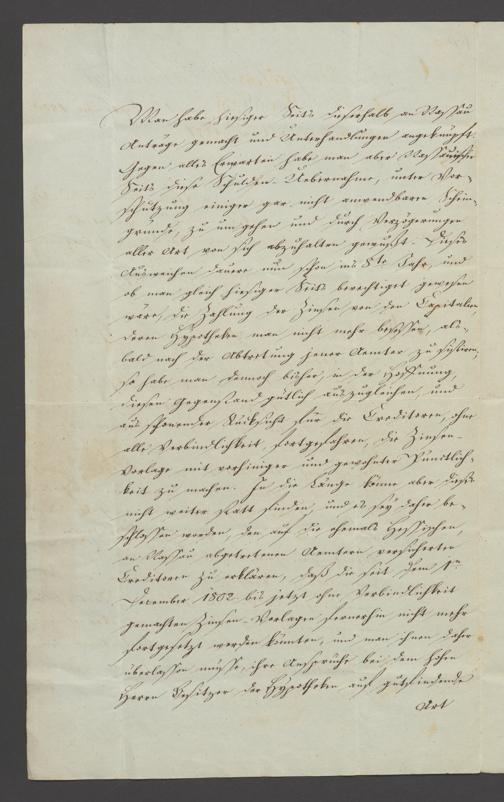 Man habe hiesiger Seits dieserhalb an Nassau
Anträge gemacht und Unterhandlungen angeknüpft.
Gegen alles Erwarten habe man aber Nassauischer
Seits diese Schulden-Uebernahme, unter Vor-
schützung einiger gar nicht anwendbaren Schein-
gründe, zu umgehen und durch Verzögerungen
aller Art von sich abzuhalten gewußt. Dieses
Ausweichen dauere nun schon ins 5te Jahr, und
ob man gleich hiesiger Seits berechtiget gewesen
wäre, die Zahlung der Zinsen von den Capitalien
deren Hypotheken man nicht mehr besessen, als-
bald nach der Abtretung jener Aemter zu sistiren,
so habe man dennoch bisher, in der Hoffnung,
diesen Gegenstand gütlich auszugleichen, und
aus schonender Rücksicht für die Creditoren, ohne
alle Verbindlichkeit fortgefahren, die Zinsen-
Vorlage mit vorhiniger und gewohnter Punctlich-
keit zu machen. In die Länge könne aber dieses
nicht weiter statt finden, und es sey daher be-
schlossen worden, den auf die ehemals Hessischen,
an Nassau abgetretenen Aemtern versicherten
Creditoren zu erklären, daß die seit dem 1ten
December 1802 bis jetzt ohne Verbindlichkeit
gemachten Zinsen-Vorlagen fernerhin nicht mehr
fortgesetzt werden könnten, und man ihnen daher
überlassen müsse, ihre Ansprüche bei dem hohen
Herrn Besitzer der Hypotheken auf gutfindende
Art